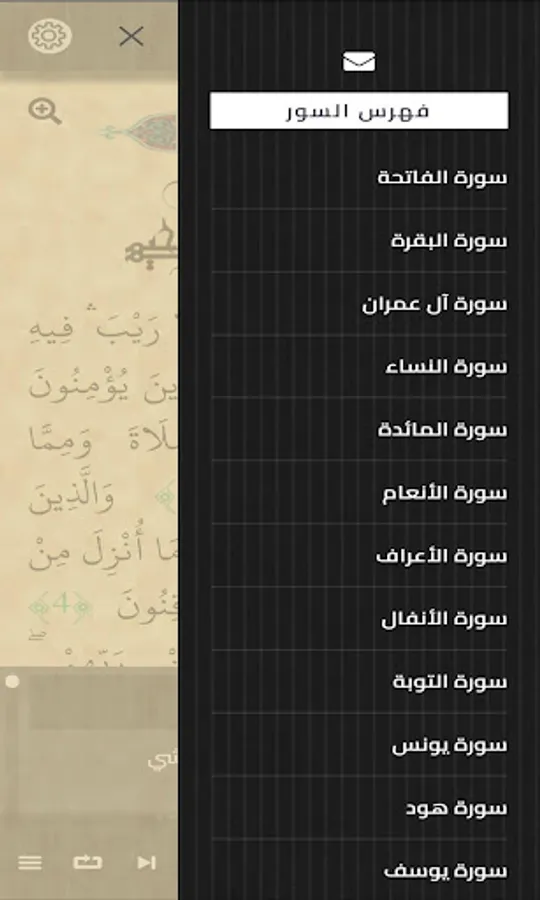 فهرس السور
سورة الفاتحة
سورة البقرة
سورة آل عمران
سورة النساء
سورة المائدة
سورة الأنعام
سورة الأعراف
سورة الأنفال
سورة التوبة
سورة يونس
سورة هود
سورة يوسف
رَيْبَ ۛ فِيهِ
يُؤْمِنُونَ
وَمِمَّا
وَالَّذِينَ
أُنْزِلَ مِنْ
﴿4﴾